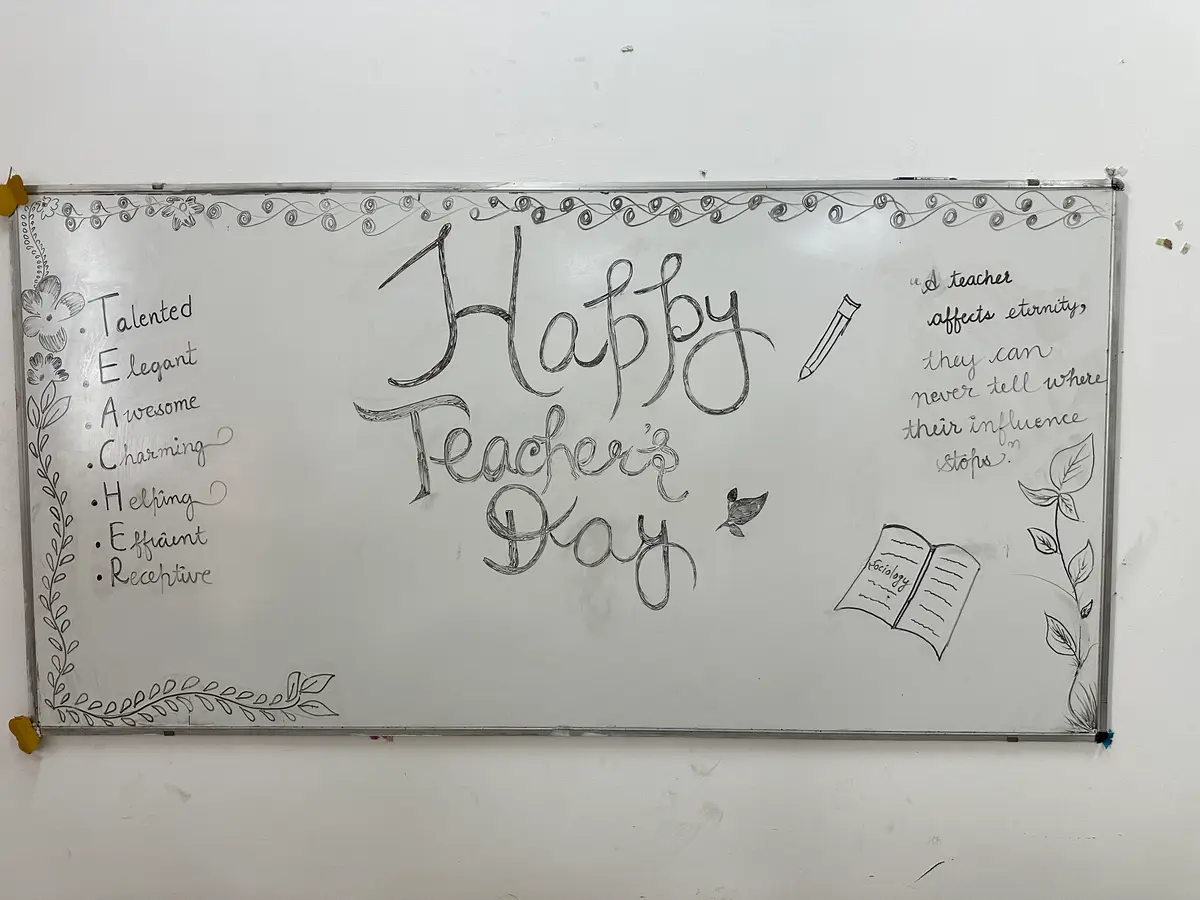 Happy
Teacher's
Day
• Talented
• Elegant
• Awesome
• Charming
• Helping
• Efficient
• Receptive
"A teacher
affects eternity,
they can
never tell where
their influence
stops."
Sociology